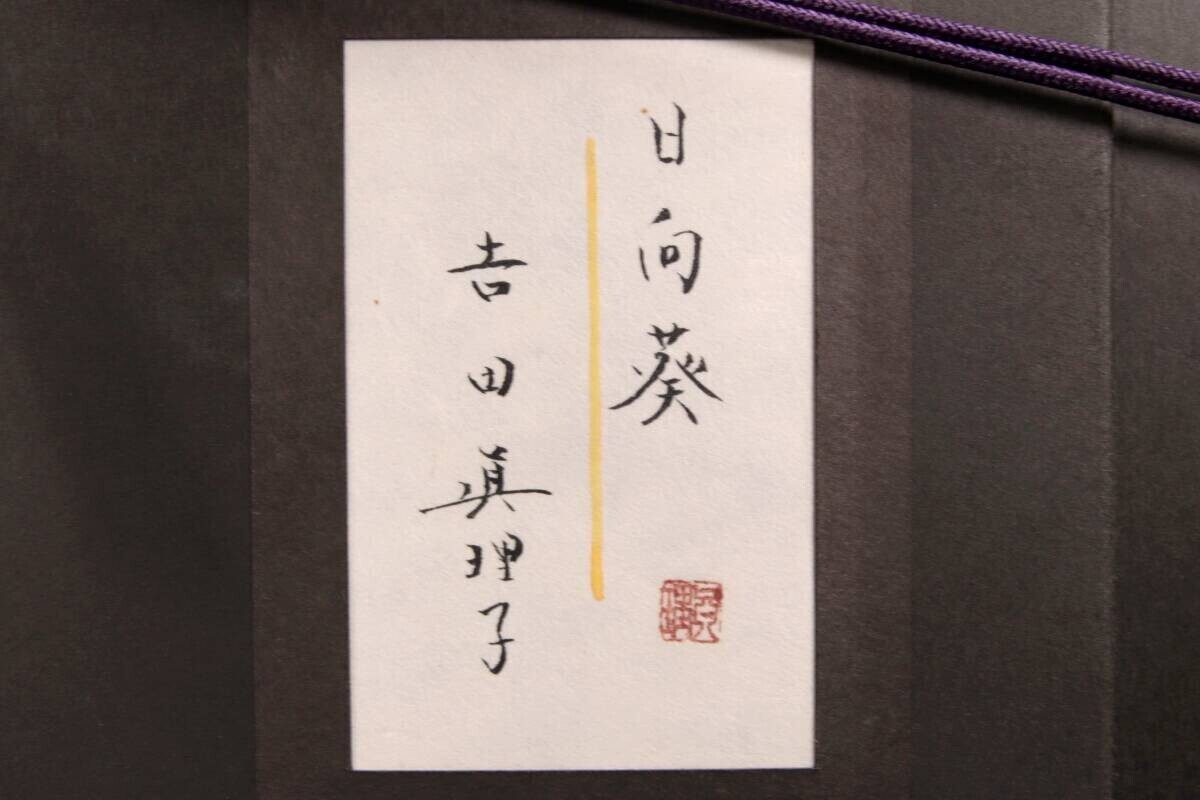 日向葵
吉田眞理子